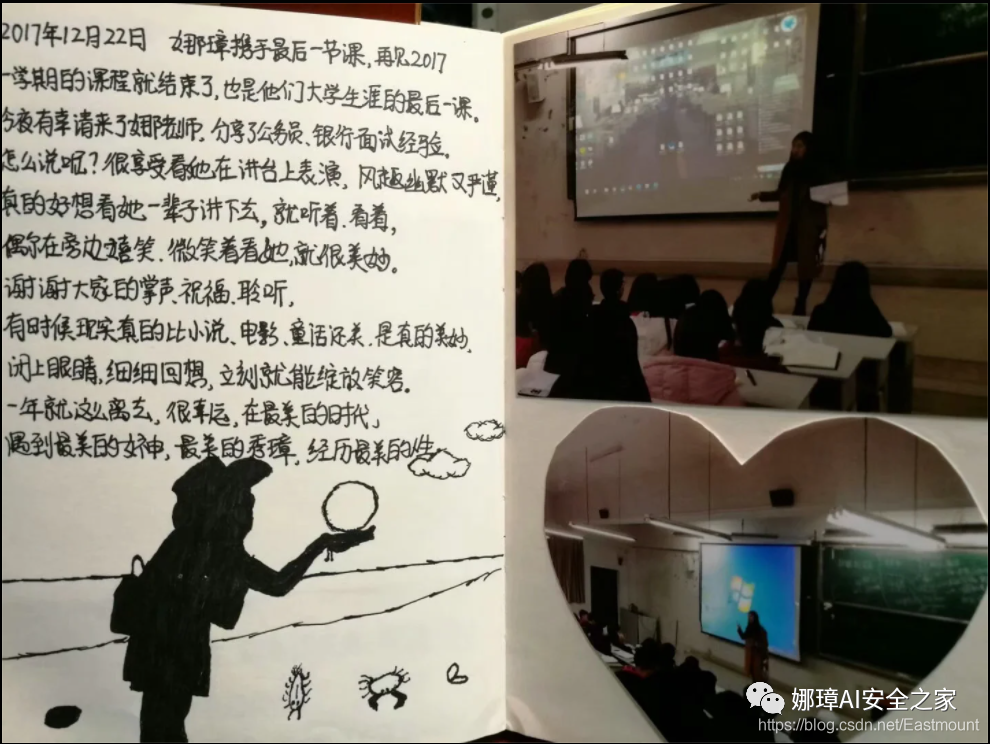 2017年12月22日 娜璋携手最后一节课,再见2017
一学期的课程就结束了,也是他们大学生涯的最后一课。
今夜有幸请来了娜老师,分享了公务员、银行面试经验。
怎么说呢?很享受看她在讲台上表演,风趣幽默又严谨,
真的好想看她一辈子讲下去,就听着、看着,
偶尔在旁边嬉笑、微笑着看她,就很美妙。
谢谢大家的掌声、祝福、聆听,
有时候现实真的比小说、电影、童话还美,是真的美妙,
闭上眼睛,细细回想,立刻就能绽放笑容。
一年就这么离去,很幸运,在最美的时代,
遇到最美的女神,最美的秀璋,经历最美的
娜璋AI安全之家
https://blog.csdn.net/Eastmount